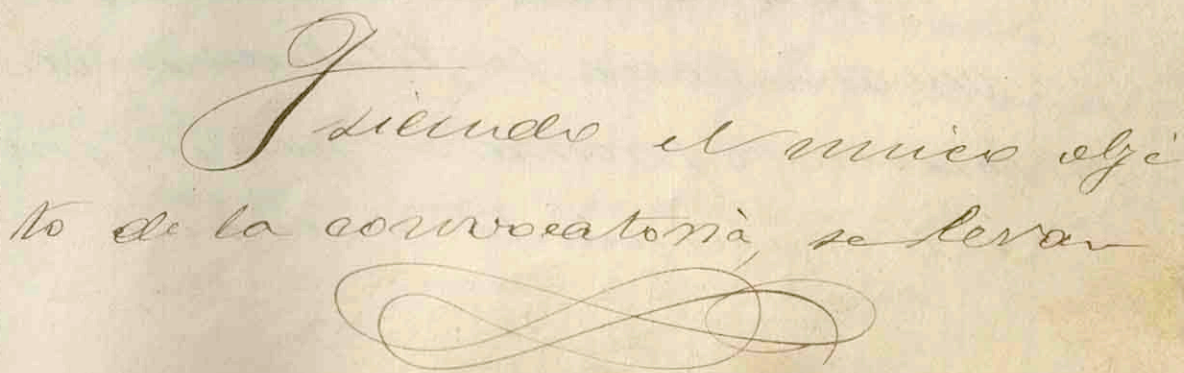 Y siendo el unico obje
to de la convocatoria, se levan